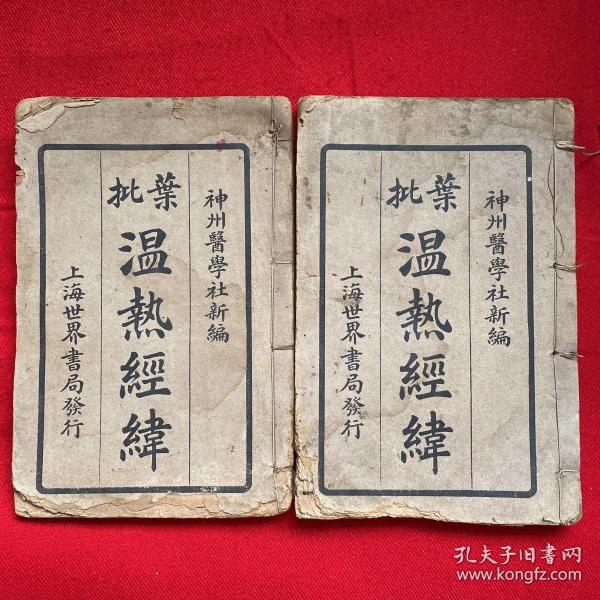 神州醫學社新編
葉批
温熱經緯
上海世界書局發行
神州醫學社新編
葉批
温熱經緯
上海世界書局發行
孔夫子旧书网
www.kongfz.com